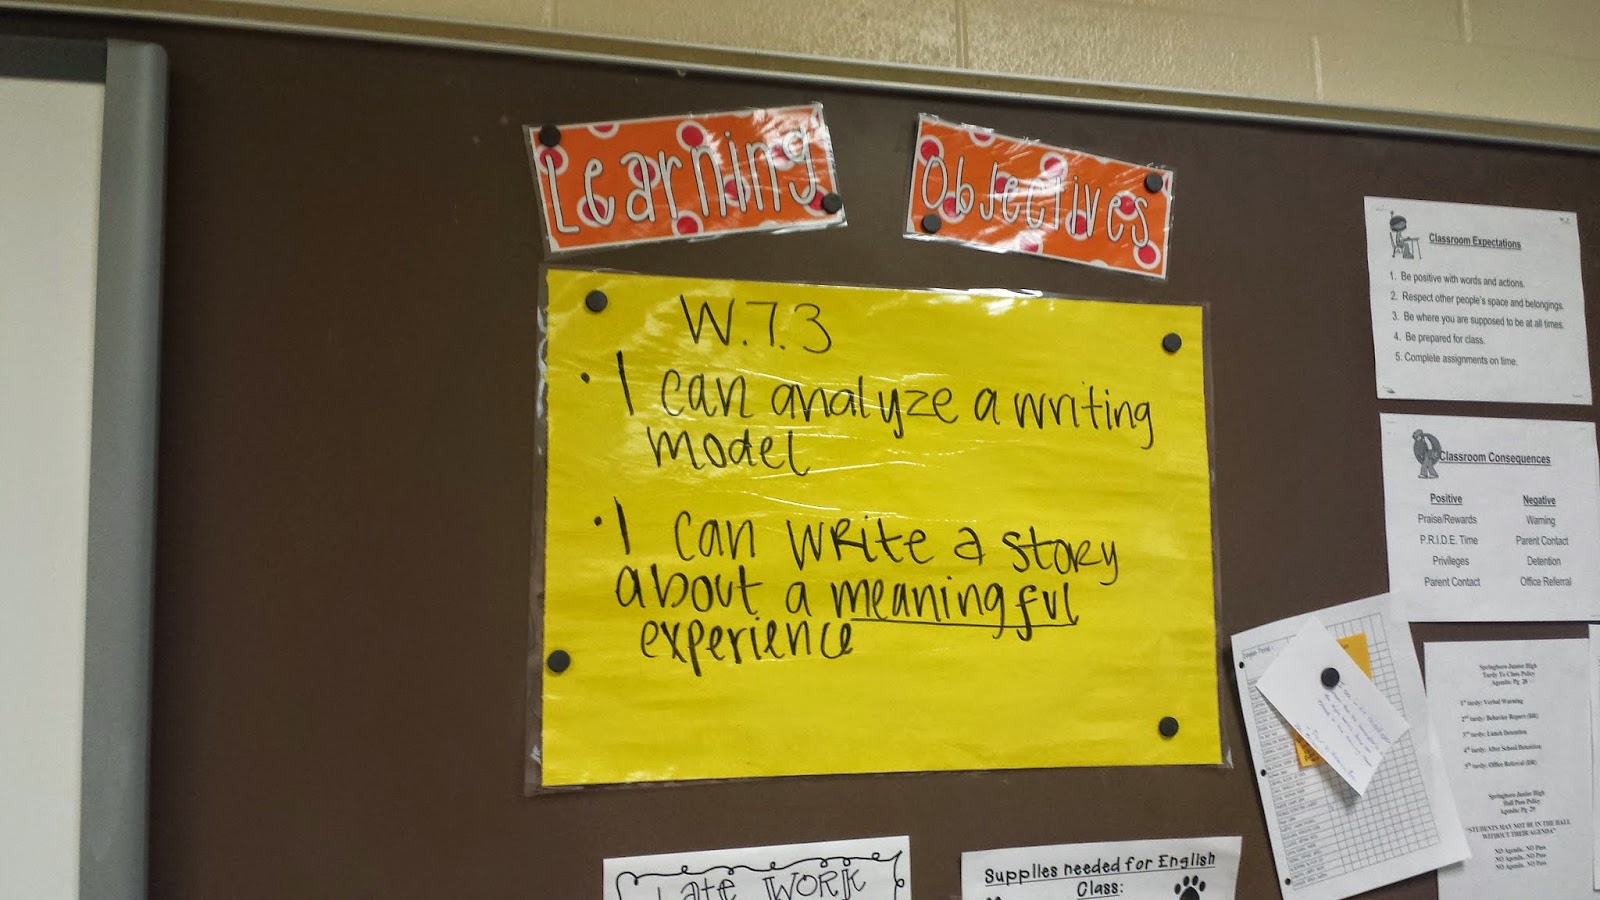 Learning
Objectives
W.7.3
· I can analyze a writing
model
· I can write a story
about a meaningful
experience
Classroom Expectations
1. Be positive with words and actions.
2. Respect other people's space and belongings.
3. Be where you are supposed to be at all times.
4. Be prepared for class.
5. Complete assignments on time.
Classroom Consequences
Positive Negative
Praise/Rewards Warning
P.R.I.D.E. Time Parent Contact
Privileges Detention
Parent Contact Office Referral
Springboro Junior High
Tardy To Class Policy
Agenda: Pg 28
1st tardy: Verbal Warning
2nd tardy: Behavior Report (BR)
3rd tardy: Lunch Detention
4th tardy: After School Detention
5th tardy: Office Referral (BR)
Springboro Junior High
Hall Pass Policy
Agenda: Pg 29
"STUDENTS MAY NOT BE IN THE HALL
WITHOUT THEIR AGENDA"
NO Agenda. NO Pass
NO Agenda. NO Pass
NO Agenda. NO Pass
Late Work
Supplies needed for English
Class: